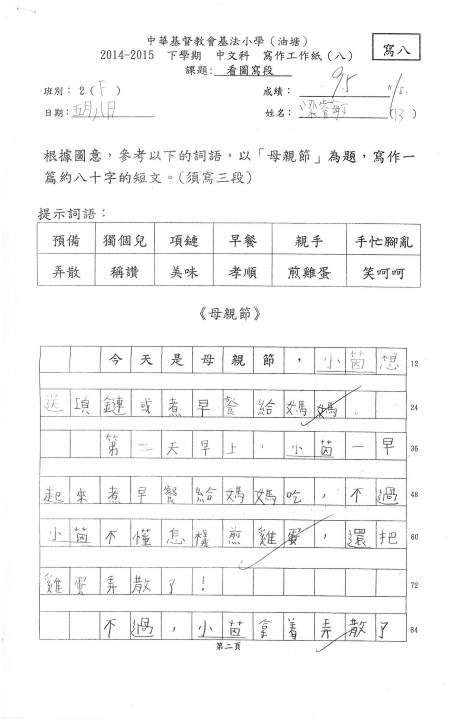 中華基督教會基法小學（油塘）
寫八
2014-2015 下學期 中文科 寫作工作紙（八）
課題： 看圖寫段
班別：2（F） 成績：
日期：五月八日 姓名：梁 敏（13）
根據圖意，參考以下的詞語，以「母親節」為題，寫作一
篇約八十字的短文。（須寫三段）
提示詞語：
預備 獨個兒 項鏈 早餐 親手 手忙腳亂
弄散 稱讚 美味 孝順 煎雞蛋 笑呵呵
《母親節》
今天是母親節，小茵想 12
送項鏈或煮早餐給媽媽。 24
第二天早上，小茵一早 36
起來煮早餐給媽媽吃，不過 48
小茵不懂怎樣煎雞蛋，還把 60
雞蛋弄散了！ 72
不過，小茵拿着弄散了 84
第二頁